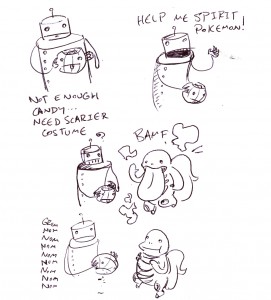 HELP ME SPIRIT
POKEMON!
NOT ENOUGH
CANDY...
NEED SCARIER
COSTUME
?
BAMF!
NOM
NOM
NOM
NOM
NOM
NOM
NOM
NOM